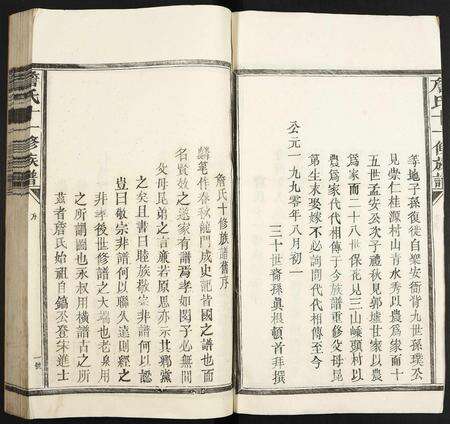 詹氏十一修族譜
等地子孫復徙自聖安衙背九世孫璞公
見崇仁桂源村山青水秀以農為家而十
五世孟安公次子禮秋見郭墟世家以農
為家而二十八世保花見三山嵊頭村以
農為家代代相傳于今族譜重修父母昆
弟生衣娶嫁不必詢問代代相傳至今
公元一九九零年八月初一
三十世裔孫眞根頓首拜撰
詹氏十修族譜舊序
麟筆作春秋龍門成史記皆國之譜也而
名賢效之遂家有譜焉孝如閔子必無間
父母昆弟之言廉若原思亦示其鄰黨
之矣且書曰睦族敬宗非譜何以認
豈曰敬宗非譜何以聯久遠則經之
非手後世修譜之大端也老泉用
之所謂圖也永叔用橫譜古之所
茲者詹氏始祖自鎬公登宋進士
詹氏十一修族譜
序
一號